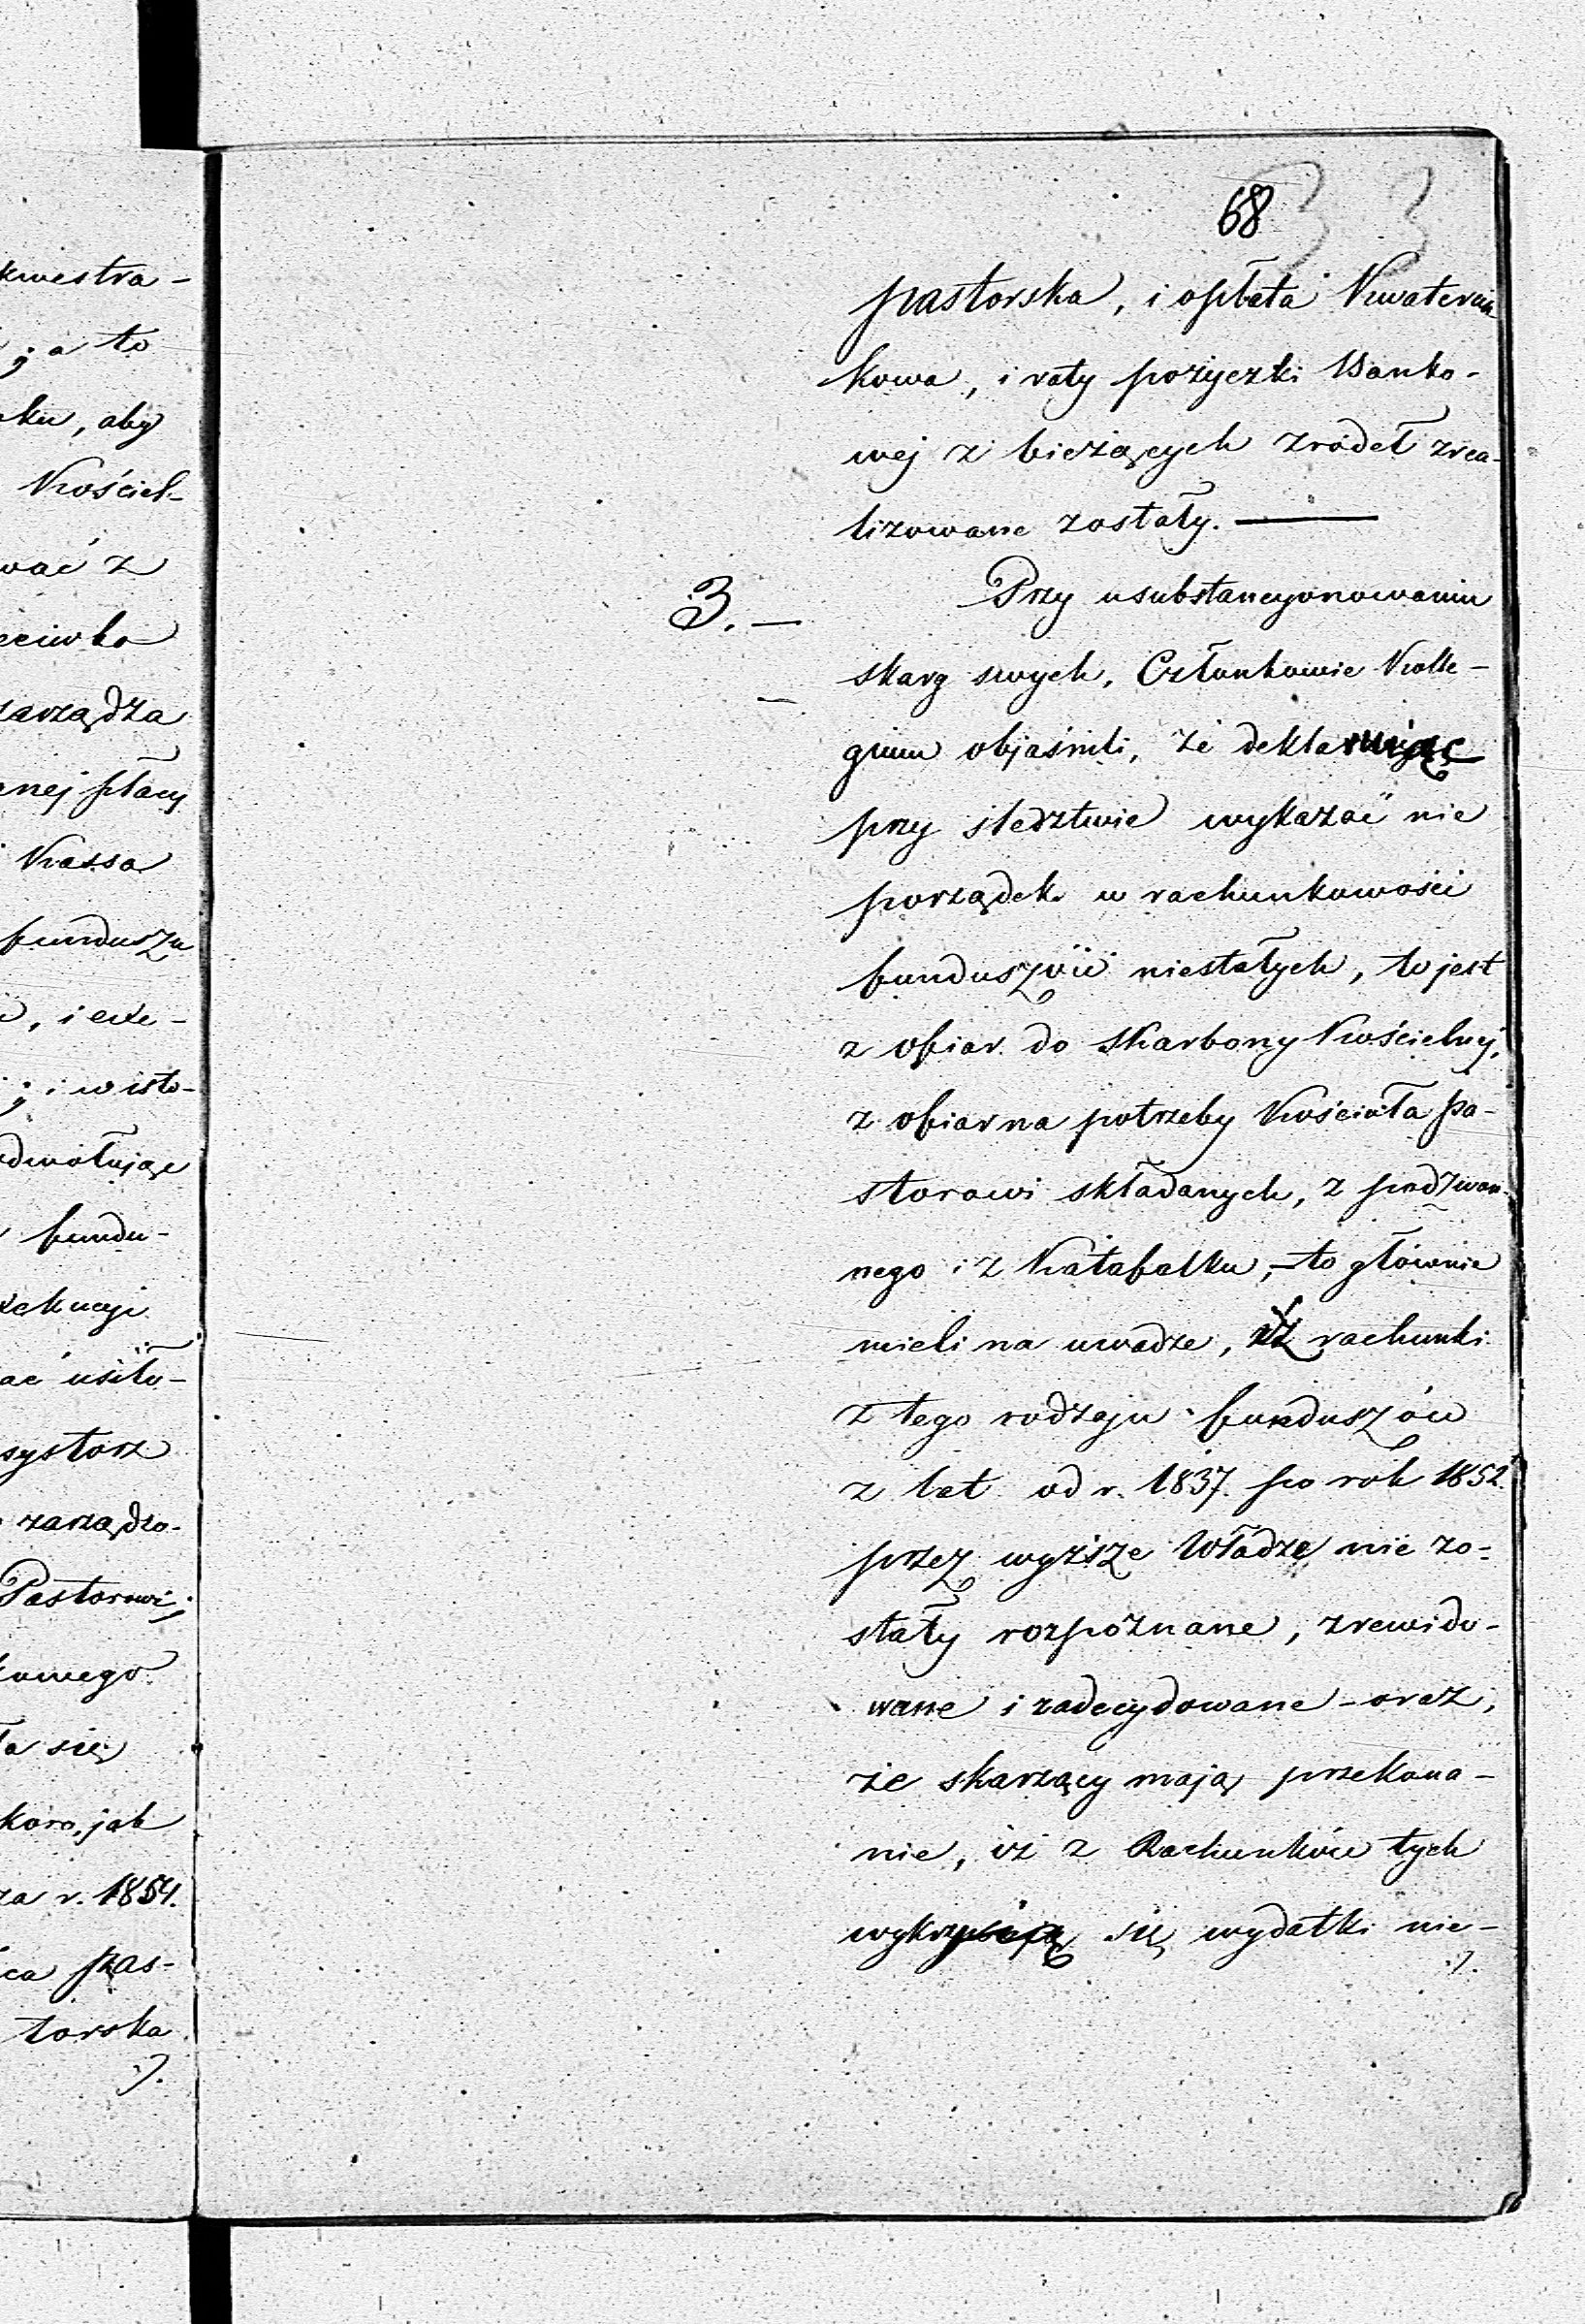 kwestra-
; a to
oku, aby
Kościel-
wać z
eciwko
zarządza
nej płacy
Kassa
funduszu
, i exe-
; i w isto-
odwołując
fundu-
xekucyi
ać usiło-
systorz
zarządzo-
Pastorowi;
kowego
ła się
koro, jak
za r. 1854.
ca pas-
torska
./.
68
33
pastorska, i opłata Kwaterun
kowa, i raty pożyczki Banko-
wej z bieżących źródeł zrea-
lizowane zostały. —
3. —
Przy usubstancyonowaniu
skarg swych, Członkowie Kolle-
gium objaśnili, że deklarując
przy śledztwie wykazać nie
porządek w rachunkowości
funduszów niestałych, to jest
z ofiar do Skarbony Kościelnej,
z ofiar na potrzeby Kościoła pa-
storowi składanych, z podzwon-
nego i z Katafalku, – to głównie
mieli na uwadze, iż rachunki
z tego rodzaju funduszów
z lat od r. 1837. po rok 1852.
przez wyższe Władze nie zo-
stały rozpoznane, zrewido-
wane i zadecydowane – oraz,
że skarzący mają przekona-
nie, iż z Rachunków tych
wykryją się wydatki nie-
./.